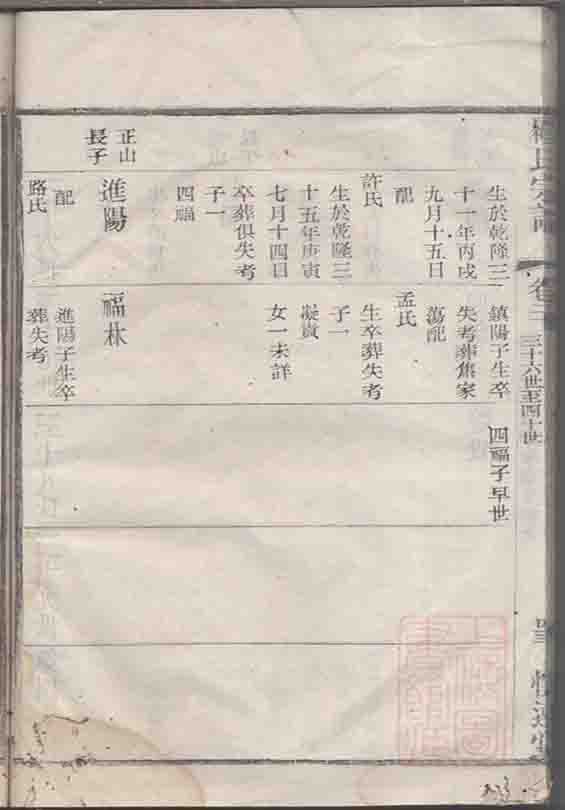 氏宗譜
卷二
三十六世至四十世
正山
長子
生於乾隆三
十一年丙戌
九月十五日
配
許氏
生於乾隆三
十五年庚寅
七月十四日
卒葬俱失考
子一
四福
進陽
配
路氏
鎮陽子生卒
失考葬焦家
蕩配
孟氏
生卒葬失考
子一
凝貴
女一未詳
福林
進陽子生卒
葬失考
四福子早世